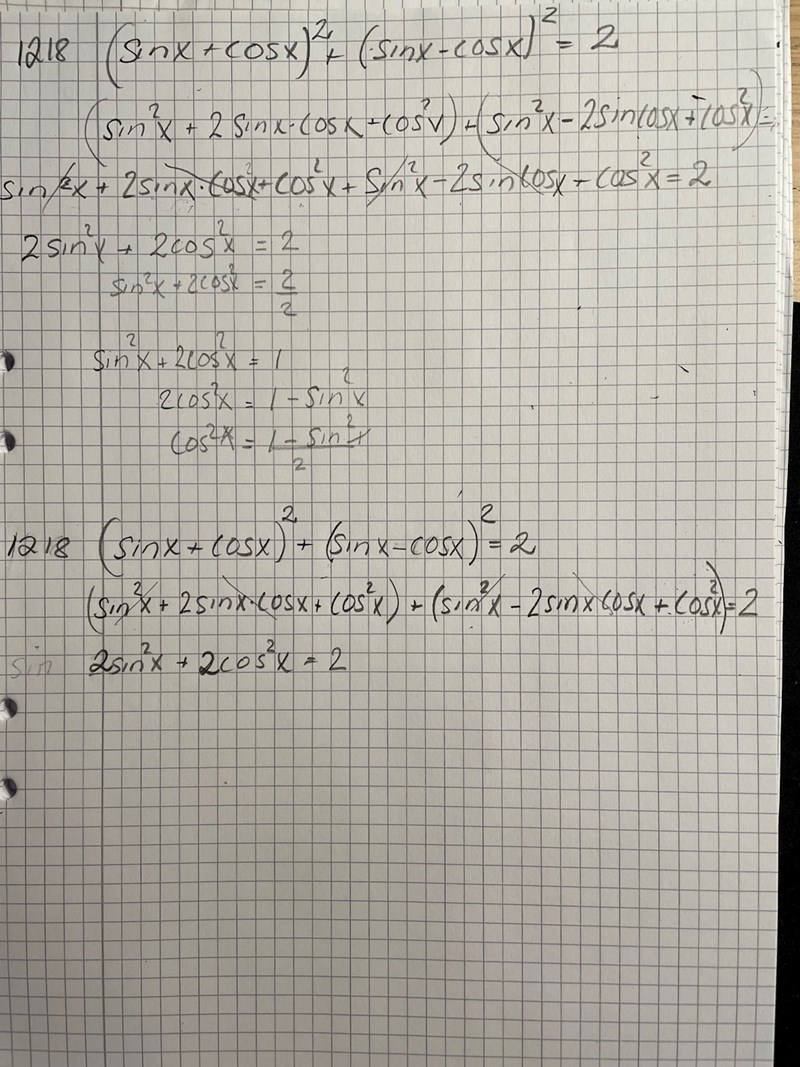 1218 (sinx + cosx)² + (sinx - cosx)² = 2
(sin²x + 2 sinx · cosx + cos²x) + (sin²x - 2sincosx + cos²x) =
sin²x + 2sinx · cosx + cos²x + sin²x - 2sincosx + cos²x = 2
2sin²x + 2cos²x = 2
sin²x + 2cos²x = 2/2
sin²x + 2cos²x = 1
2cos²x = 1 - sin²x
cos²x = (1 - sin²x)/2
1218 (sinx + cosx)² + (sinx - cosx)² = 2
(sin²x + 2sinx · cosx + cos²x) + (sin²x - 2sinx cosx + cos²x) = 2
sin 2sin²x + 2cos²x = 2